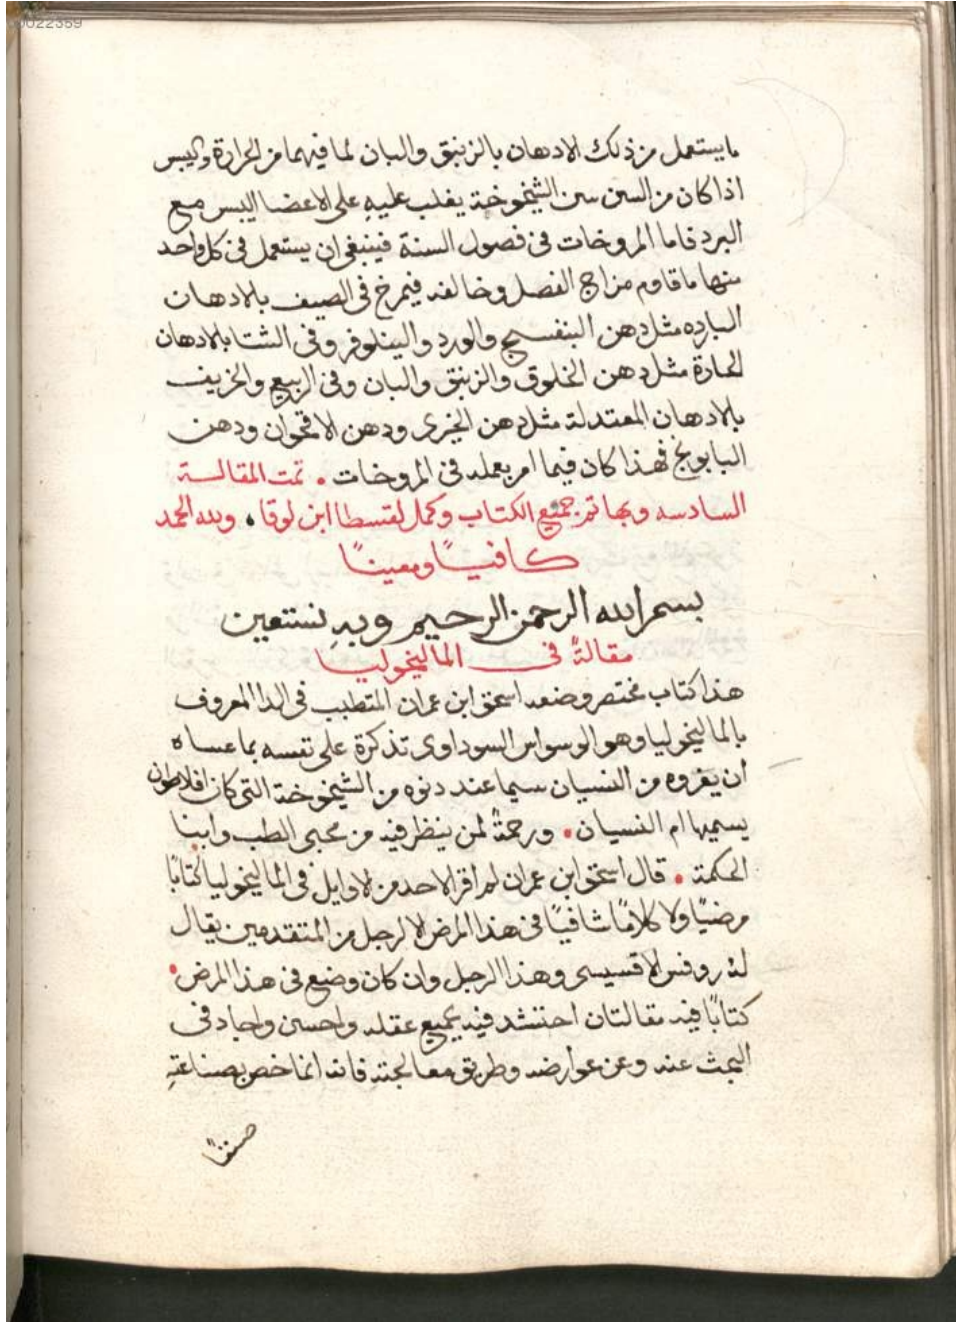 00022359
ما يستعمل من ذلك الادهان بالزنبق والبان لما فيهما من الحرارة واليبس
اذا كان من السن سن الشيخوخة يغلب عليه على الاعضا اليبس مع
البرد فاما المروخات فى فصول السنة فينبغى ان يستعمل فى كل واحد
منها ما قاوم مزاج الفصل وخالفه فيمرخ فى الصيف بالادهان
البارده مثل دهن البنفسج والورد والنيلوفر وفى الشتا بالادهان
الحارة مثل دهن الخلوق والزنبق والبان وفى الربيع والخريف
بالادهان المعتدلة مثل دهن الخيرى ودهن الاقحوان ودهن
البابونج فهذا كان فيما امر بعمله فى المروخات • تمت المقالة
السادسه وبها تم جميع الكتاب وكمل لقسطا ابن لوقا • ولله الحمد
كافيًا ومعينًا
بسم الله الرحمن الرحيم وبهِ نستعين
مقالةٌ فى الماليخوليا
هذا كتاب مختصر وضعه اسحق ابن عمران المتطبب فى الدا المعروف
بالماليخوليا وهو الوسواس السوداوى تذكرة على نفسه بما عساه
ان يغزوه من النسيان سيما عند دنوه من الشيخوخة التى كان افلاطون
يسميها ام النسيان • ورحمةً لمن ينظر فيه من محبى الطب وابنا
الحكمة • قال اسحق ابن عمران لم اقرا لاحد من الاوايل فى الماليخوليا كتابًا
مرضيًا ولا كلامًا شافيًا فى هذا المرض الا لرجل من المتقدمين يقال
له روفس الاقسيسى وهذا الرجل وان كان وضع فى هذا المرض •
كتابًا فيه مقالتان احتشد فيه بجميع عقله واحسن واجاد فى
البحث عنه وعن عوارضه وطريق معالجته فانه انما خص بصناعتهِ
صنفًا